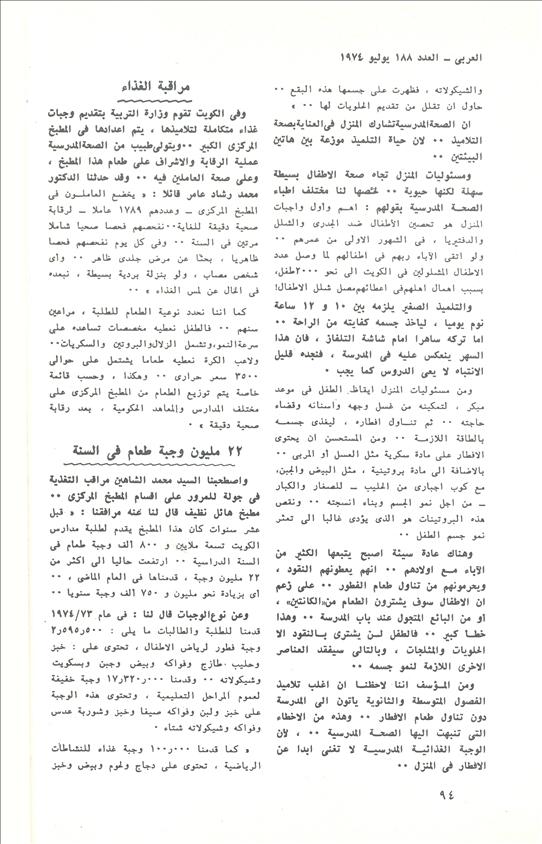 العربي – العدد ١٨٨ يوليو ١٩٧٤
والشيكولاته ، فظهرت على جسمها هذه البقع ··
حاول ان تقلل من تقديم الحلويات لها ·· »
ان الصحة المدرسية تشارك المنزل في العناية بصحة
التلاميذ ·· لان حياة التلميذ موزعة بين هاتين
البيئتين ··
ومسئوليات المنزل تجاه صحة الاطفال بسيطة
سهلة لكنها حيوية ·· لخصها لنا مختلف اطباء
الصحة المدرسية بقولهم : اهم واول واجبات
المنزل هو تحصين الأطفال ضد الجدرى والشلل
والدفتيريا ، في الشهور الاولى من عمرهم ··
ولو اتقى الآباء ربهم في اطفالهم لما وصل عدد
الاطفال المشلولين في الكويت الى نحو ٢٠٠٠ طفل،
بسبب اهمال اهلهم في اعطائهم مصل شلل الاطفال!
والتلميذ الصغير يلزمه بين ١٠ و ١٢ ساعة
نوم يوميا ، لياخذ جسمه كفايته من الراحة ··
اما تركه ساهرا امام شاشة التلفاز ، فان هذا
السهر ينعكس عليه في المدرسة ، فتجده قليل
الانتباه لا يعى الدروس كما يجب ·
ومن مسئوليات المنزل ايقاظ الطفل في موعد
مبكر ، لتمكينه من غسل وجهه واسنانه وقضاء
حاجته ·· ثم تناول افطاره ، ليغذى جسمه
بالطاقة اللازمة ·· ومن المستحسن ان يحتوى
الافطار على مادة سكرية مثل العسل او المربى ··
بالاضافة الى مادة بروتينية ، مثل البيض والجبن،
مع كوب اجبارى من الحليب – للصغار والكبار
– من اجل نمو الجسم وبناء انسجته ·· ونقص
هذه البروتينات هو الذى يؤدى غالبا الى تعثر
نمو جسم الطفل ··
وهناك عادة سيئة اصبح يتبعها الكثير من
الآباء مع اولادهم ·· انهم يعطونهم النقود ،
ويحرمونهم من تناول طعام الفطور ·· على زعم
ان الاطفال سوف يشترون الطعام من «الكانتين» ،
او من البائع المتجول عند باب المدرسة ·· وهذا
خطأ كبير ·· فالطفل لن يشترى بالنقود الا
الحلويات والمثلجات ، وبالتالى سيفقد العناصر
الاخرى اللازمة لنمو جسمه ··
ومن المؤسف اننا لاحظنا ان اغلب تلاميذ
الفصول المتوسطة والثانوية يأتون الى المدرسة
دون تناول طعام الافطار ·· وهذه من الاخطاء
التى تنبهت اليها الصحة المدرسية ·· ، لأن
الوجبة الغذائية المدرسية لا تغنى ابدا عن
الافطار في المنزل ··
مراقبة الغذاء
وفى الكويت تقوم وزارة التربية بتقديم وجبات
غذاء متكاملة لتلاميذها ، يتم اعدادها في المطبخ
المركزى الكبير ·· ويتولى طبيب من الصحة المدرسية
عملية الرقابة والاشراف على طعام هذا المطبخ ،
وعلى صحة العاملين فيه ·· وقد حدثنا الدكتور
محمد رشاد عامر قائلا : « يخضع العاملون فى
المطبخ المركزى – وعددهم ١٧٨٩ عاملا – لرقابة
صحية دقيقة للغاية ·· نفحصهم فحصا صحيا شاملا
مرتين فى السنة ·· وفى كل يوم نفحصهم فحصا
ظاهريا ، بحثا عن مرض جلدى ظاهر ·· واى
شخص مصاب ، ولو بنزلة بردية بسيطة ، نبعده
فى الحال عن لمس الغذاء » ··
كما اننا نحدد نوعية الطعام للطلبة ، مراعين
سنهم ·· فالطفل نعطيه مخصصات تساعده على
سرعة النمو، وتشمل الزلال والبروتين والسكريات ··
ولاعب الكرة نعطيه طعاما يشتمل على حوالى
٣٥٠٠ سعر حرارى ·· وهكذا ، وحسب قائمة
خاصة يتم توزيع الطعام من المطبخ المركزى على
مختلف المدارس والمعاهد الحكومية ، بعد رقابة
صحية دقيقة » ·
٢٢ مليون وجبة طعام فى السنة
واصطحبنا السيد محمد الشاهين مراقب التغذية
فى جولة للمرور على اقسام المطبخ المركزى ··
مطبخ هائل نظيف قال لنا عنه مرافقنا : « قبل
عشر سنوات كان هذا المطبخ يقدم لطلبة مدارس
الكويت تسعة ملايين و ٨٠٠ الف وجبة طعام فى
السنة الدراسية ·· ارتفعت حاليا الى اكثر من
٢٢ مليون وجبة ، قدمناها فى العام الماضى ، ··
أى بزيادة نحو مليون و ٧٥٠ الف وجبة سنويا ··
وعن نوع الوجبات قال لنا : فى عام ١٩٧٤/٧٣
قدمنا للطلبة والطالبات ما يلى : ٢٫٥٩٥٫٥٠٠
وجبة فطور لرياض الاطفال ، تحتوى على : خبز
وحليب طازج وفواكه وبيض وجبن وبسكويت
وشيكولاته ·· وقدمنا ١٧٫٣٢٠٫٠٠٠ وجبة خفيفة
لعموم المراحل التعليمية ، وتحتوى هذه الوجبة
على خبز ولبن وفواكه صيفا وخبز وشوربة عدس
وفواكه وشيكولاته شتاء ·
« كما قدمنا ١٠٠٫٠٠٠ وجبة غذاء للنشاطات
الرياضية ، تحتوى على دجاج ولحوم وبيض وخبز
٩٤